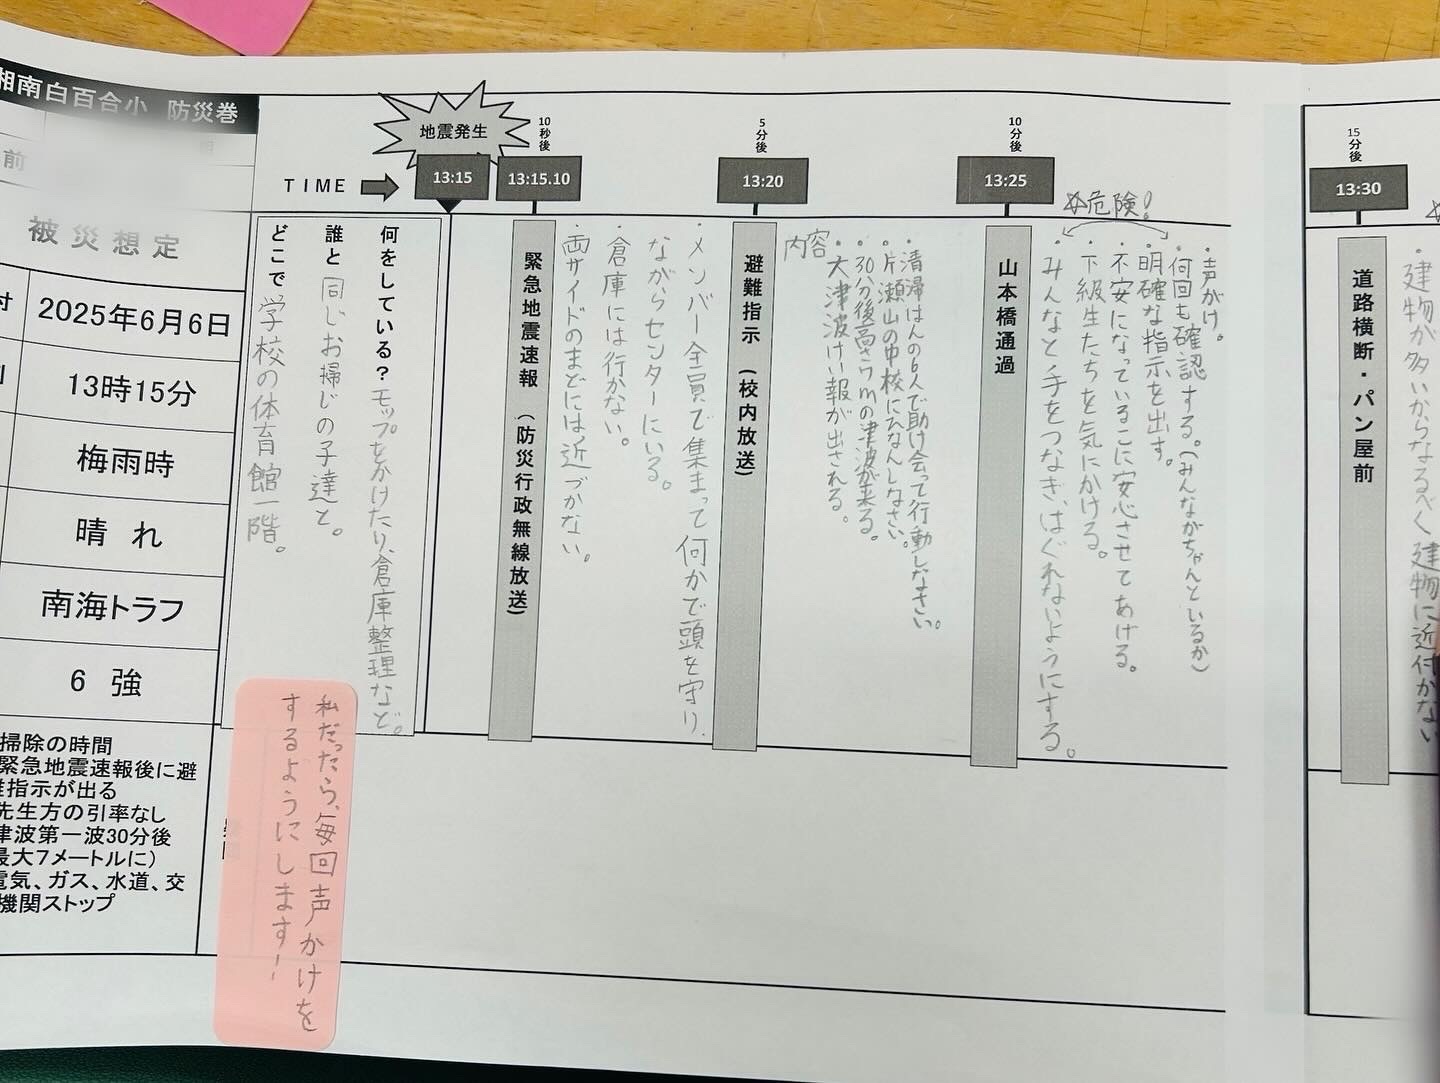 湘南白百合小 防災巻
前
被災想定
付
2025年6月6日
刻
13時15分
梅雨時
晴れ
南海トラフ
6 強
掃除の時間
緊急地震速報後に避
難指示が出る
先生方の引率なし
津波第一波30分後
最大7メートルに）
電気、ガス、水道、交
機関ストップ
TIME
地震発生
13:15
10秒後
13:15.10
5分後
13:20
10分後
13:25
15分後
13:30
何をしている？モップをかけたり、倉庫整理など。
誰と 同じお掃じの子達と。
どこで 学校の体育館一階。
緊急地震速報（防災行政無線放送）
・両サイドのまどには近づかない。
・倉庫には行かない。
・メンバー全員で集まって何かで頭を守り、
ながらセンターにいる。
避難指示（校内放送）
内容
・清掃はんの6人で助け合って行動しなさい。
・片瀬山の中校にひなんしなさい。
・30分後高さ7mの津波が来る。
・大津波けい報が出される。
山本橋通過
危険！
・声がけ。
・何回も確認する。（みんながちゃんといるか）
明確な指示を出す。
・不安になっているこに安心させてあげる。
・下級生たちを気にかける。
・みんなと手をつなぎ、はぐれないようにする。
道路横断・パン屋前
・建物が多いからなるべく建物に近付かない
私だったら、毎回声かけを
するようにします！